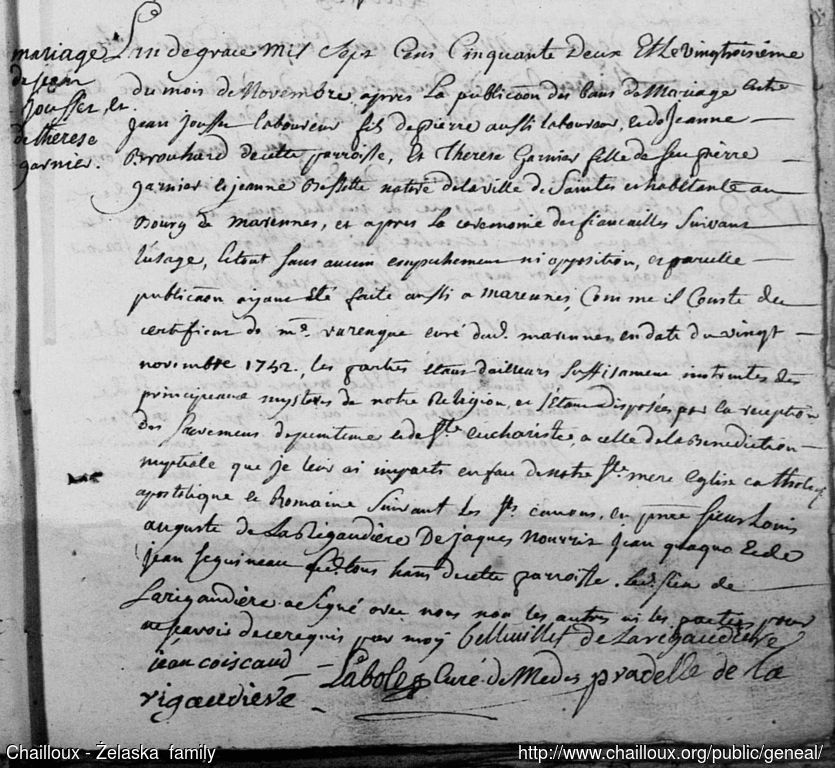 mariage
de jean
jousset, et
de therese
garnier.
L'an de grace mil sept cens cinquante deux et le vingtroisieme
du mois de Novembre apres la publicaon des bans de Mariage entre
jean jousset laboureur fils de pierre aussi laboureur, et de Jeanne
Brouhard de cette parroisse, et Therese Garnier fille de feu pierre
garnier et jeanne native de la ville de Saintes et habitante au
Bourg de marennes, et apres la ceremonie des fiancailles suivant
l'usage, le tout sans aucun empechement ni opposition, et pareille
publicaon ayant eté faite aussi a marennes, comme il conste du
certificat de mr. varenque curé dud. marennes, en date du vingt
novembre 1752, les parties etant dailleurs suffisament instruites des
principeaux mysteres de notre Religion, et s'etant disposées par la reception
des sacremens de penitence et de ste eucharistie, a celle de la Benediction
nuptiale que je leur ai imparti en face de notre ste mere Eglise catholiq
apostolique et Romaine suivant les sts canons, en pnce sieur Louis
auguste de La Rigaudiere De jaques nourris jean et de
jean seguineau tous hans de cette parroisse. led. sieur de
Larigaudiere a signé avec nous non les autres ni les parties pour
ne sçavoir de ce requis par moy de Larigaudiere
jean coiscaud Labole Curé de Medes pradelle de la
rigaudiere
Chailloux - Żelaska family
http://www.chailloux.org/public/geneal/